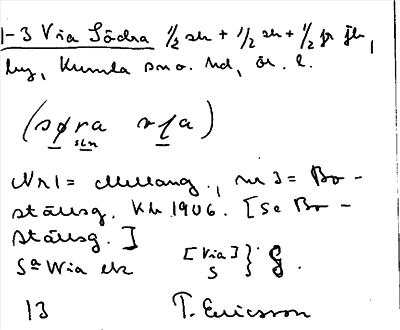 1-3 Via Södra 1/2 sk + 1/2 sk + 1/2 fr fk,
by, Kumla sn o. hd, ör. l.
(søra via)
Nr 1 = Mellang., nr 3 = Bo-
ställsg. Kb 1906. [Se Bo-
ställsg.]
Sa Wia ek [Via] S } g.
13 T. Ericsson